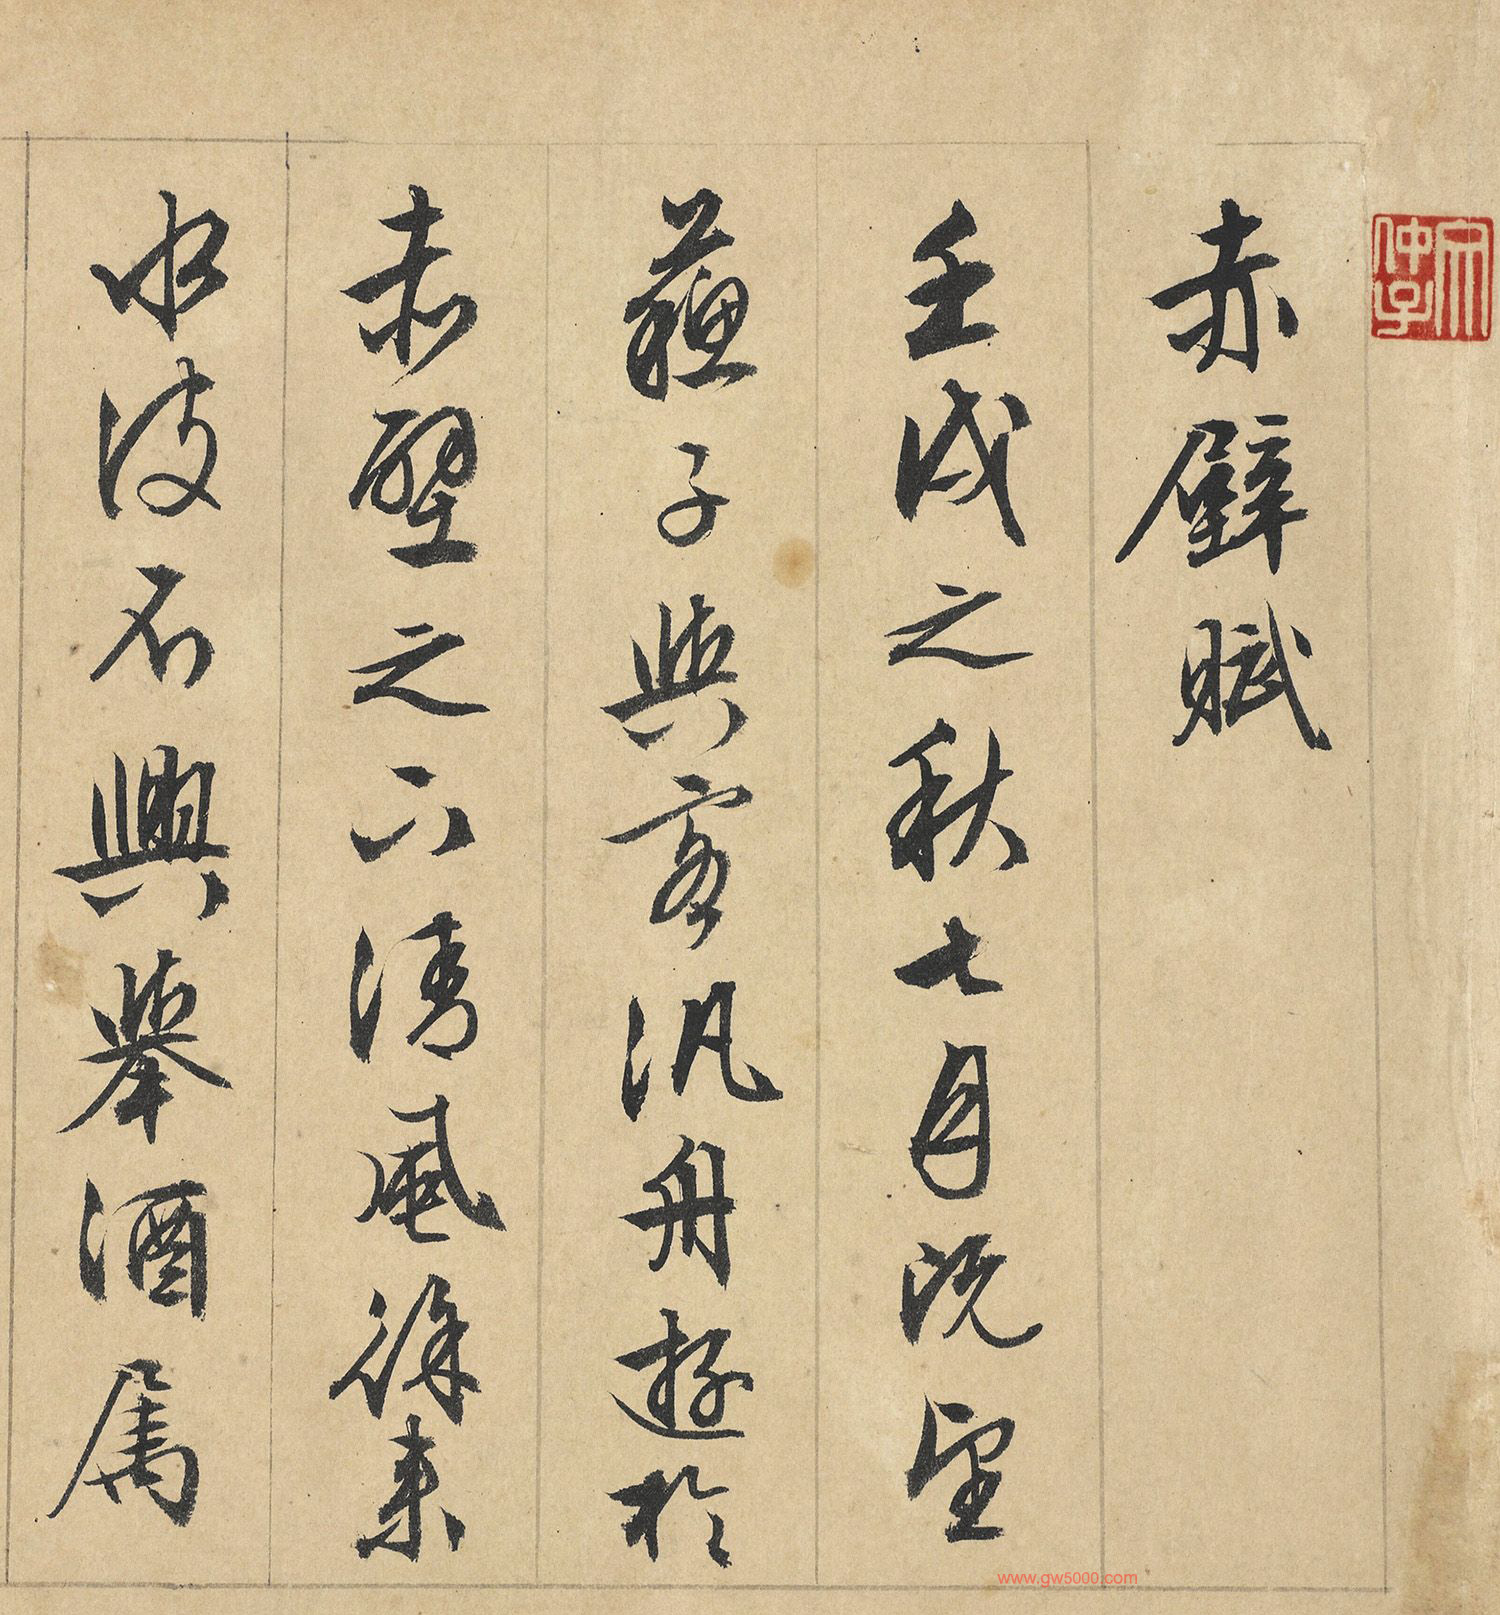 赤壁賦
壬戌之秋七月既望
蘇子與客汎舟遊於
赤壁之下清風徐來
水波不興舉酒属
www.gw5000.com